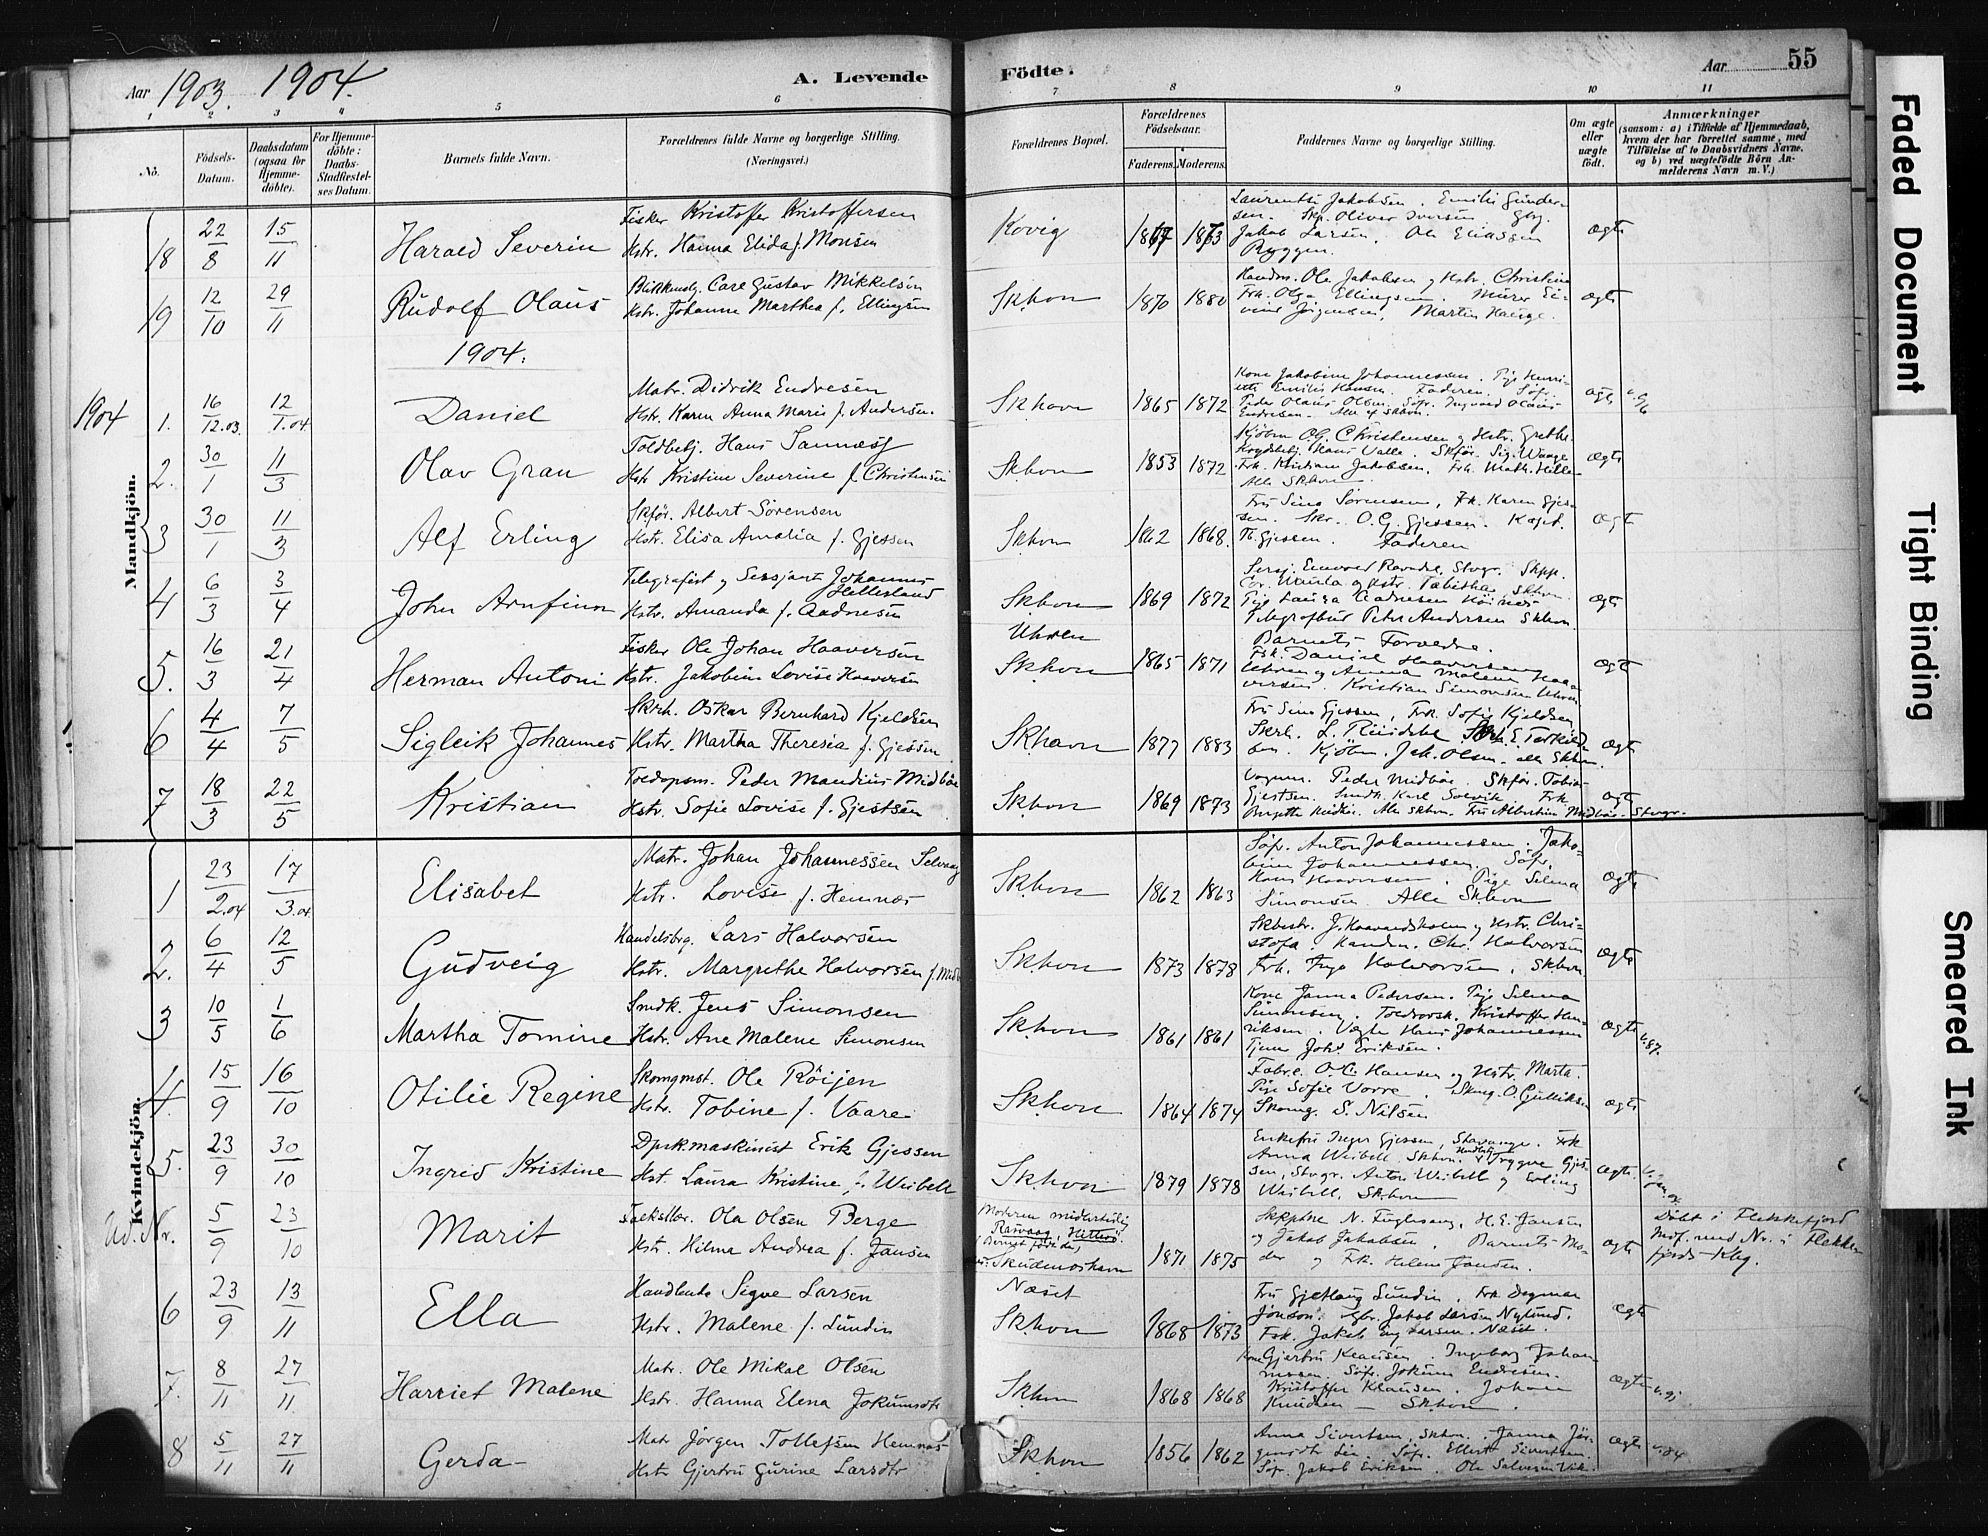 Aar 1903. 1904. A. Levende Födte. Aar 55
1 2 3 4 5 6 7 8 9 10 11
No.
Födsels-Datum.
Daabsdatum (ogsaa for Hjemmedöbte).
For Hjemmedöbte: Daabs-Stadfestelses Datum.
Barnets fulde Navn.
Forældrenes fulde Navne og borgerlige Stilling. (Næringsvei.)
Forældrenes Bopæl.
Forældrenes Födselsaar.
Faderens. Moderens.
Faddernes Navne og borgerlige Stilling.
Om ægte eller uægte födt.
Anmærkninger
(saasom: a) i Tilfælde af Hjemmedaab, hvem der har forrettet samme, med Tilföielse af to Daabsvidners Navne, og b) ved uægtefödte Börn Anmelderens Navn m. V.)
Mandkjön.
18 22/8 15/11 Harald Severin
Fisker Kristoffer Kristoffersen
Hstr. Hanna Elida f. Monsen
Kovig 1867 1873
Laurentse Jakobsen. Emilie Gundersen. Skp. Oliver Iversen
Jakob Larsen. Ole Eliassen
Ryggen.
ægte
19 12/10 29/11 Rudolf Olaus
Carl Gustav Mikkelsen
Hstr. Johanne Marthea f. Ellingsen
Skhvn 1870 1880
Ole Jakobsen og Hstr. Christine
Frk. Olga Ellingsen. Murer Eivind Jörgensen, Martin Hauge.
ægte
1904.
1904 1. 16/12.03 12/1.04 Daniel
Matr. Didrik Endresen
Hstr. Karen Anna Marie f. Andersen.
Skhavn 1865 1872
Kone Jakobine Johannessen. Pige Henriette Emilie Hansen. Faderen. Söfr.
Peder Olaus Olsen. Söfr. Ingvald Olaus
Endresen. Alle af Skhvn.
ægte
2. 30/1 11/3 Olav Gran
Toldbetj. Hans Sannæss
Hstr Kristine Severine f. Christensen
Skhvn 1853 1872
Kjöbm O.G. Christensen og Hstr. Grethe.
Hans Valle. Skför. Sig. Waage
Frk. Kristiane Jakobsen. Frk. Math. Hille
Alle Skhvn
ægte
3 30/1 11/3 Alf Erling
Skför. Albert Sörensen
Hstr. Elisa Amalia f. Gjessen
Skhvn 1862 1868.
Fru Sina Sörensen, Frk. Karen Gjessen. Skr. O.G. Gjessen. Kapt.
Th. Gjessen. Faderen
ægte
4 6/3 3/4 John Arnfinn
Telegrafist og Sersjant Johannes Hellesland
Hstr. Amanda f. Aadnesen
Skhvn 1869 1872
Sersj. Enevold Ravndal, Stvgr. Skpp.
og Hstr. Tabitha, Skhvn.
Pige Laura Aadnesen
Telegrafbud Peter Andersen Skhvn.
ægte
5. 16/3 21/4 Herman Antoni
Fisker Ole Johan Haaversen
Hstr. Jakobine Lovise Haaversen
Uhvlen
Skhvn 1865 1871
Barnets Forældre.
Fsk. Daniel Haaversen
og Anna Malene Haaversen. Kristian Simonsen
ægte
6 4/4 7/5 Sigleik Johannes
Skrh. Oskar Bernhard Kjeldsen
Hstr. Martha Theresia f. Gjessen
Skhavn 1877 1883
Fru Sina Gjessen, Frk. Sofie Kjeldsen
Kjöbm. Joh. Olsen. alle Skhvn.
ægte
7 18/3 22/5 Kristian
Toldopsm. Peder Mandius Midböe
Hstr. Sofie Lovise f. Gjestsen
Skhvn 1869 1873
Peder Midböe. Skför. Tobias
Gjestsen. Smedk. Karl Solvik. Frk.
Birgitte Midböe. Alle Skhvn. Fru Albertine Midböe. Stvgr.
ægte
Kvindekjön.
1 23/2.04 17/3.04 Elisabet
Matr. Johan Johannessen Selvaag
Hstr. Lovise f. Hemnæs
Skhvn 1862 1863
Söfr. Anton Johannessen. Jakobine Johannessen. Söfr.
Hans Haaversen. Pige Selma
Simonsen. Alle Skhvn
ægte
2. 6/4 12/5 Gudveig
Handelsbrg. Lars Halvorsen
Hstr. Margrethe Halvorsen f. Midb
Skhvn 1873 1878
J. Haavardsholm og Hstr. Christofa. Handm. Chr. Halvorsen
Frk. Inga Halvorsen. Skhvn
ægte
3 10/5 1/6 Martha Tomine
Smdk. Jens Simonsen
Hstr. Ane Malene Simonsen
Skhvn 1861 1861
Kone Janna Pedersen. Pige Selma
Simonsen. Kristoffer Henriksen. Hans Johannessen
Johs Eriksen.
ægte v.87.
4. 15/9 16/10 Otilie Regine
Skomgmst. Ole Röijen
Hstr. Tobine f. Vaare
Skhvn 1864 1874
Fabr. O.C. Hansen og Hstr. Marta.
Pige Sofie Vorre. Skmg. O. Gulliksen
Skomg. S. Nilsen
ægte
5. 23/9 30/10 Ingrid Kristine
Dpsk.maskinist Erik Gjessen
Hst. Laura Kristine f. Weibell
Skhvn 1879 1878
Enkefru Inger Gjessen, Stavanger. Frk
Anna Weibell Skhvn. Trygve Gjessen, Stvgr. Anton Weibell og Erling
Weibell, Skhvn
ægte
Ud. Nr. 5/9 23/10 Marit
Ola Olsen Berge
Hstr. Hilma Andrea f. Jansen
Moderen midlertidig
Rasvaag, Hitterö.
Skudeneshavn 1871 1875
N. Fuglesang, H.E. Jansen
og Jakob Jakobsen. Barnets Moder og Frk. Helene Jansen.
ægte
Döbt i Flekkefjord
Indf. med Nr. i Flekkefjords Kbg.
6 23/9 13/11 Ella
Handlende Sigve Larsen
Hstr. Malene f. Lundin
Næset
Skhvn 1868 1873
Fru Gjetlaug Lundin, Frk Dagmar
Jonson. Gbr. Jakob Larsen Nylund.
Fsk. Jakob Eng Larsen. Næset.
ægte
7. 8/11 27/11 Harriet Malene
Matr. Ole Mikal Olsen
Hstr. Hanna Elena Jokumsdtr
Skhvn 1868 1868
Kone Gjertru Klausen. Ingeborg Johannessen. Söfr. Jokum Endresen.
Kristoffer Klausen. Johan
Knudsen — Skhvn.
ægte v.91
8 5/11 27/11 Gerda
Matr Jörgen Tollefsen Hemnæs
Hstr Gjertru Gurine Larsdtr
Skhvn 1856 1862
Anna Sivertsen, Skhvn. Janna Jörgensdtr Lie. Söfr. Ellert Sivertsen
Söfr. Jakob Eriksen. Ole Salvesen Vik.
ægte v.84
Faded Document
Tight Binding
Smeared Ink